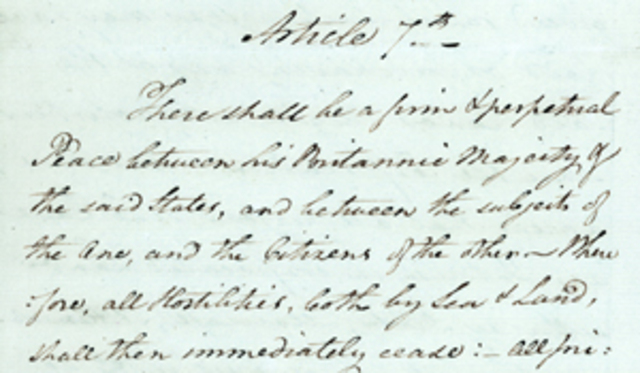 Article 7th
There shall be a firm & perpetual
Peace between his Britannic Majesty &
the said States, and between the subjects of
the One, and the Citizens of the other— Where
:fore, all Hostilities, both by Sea & Land,
shall then immediately cease:— All pri: